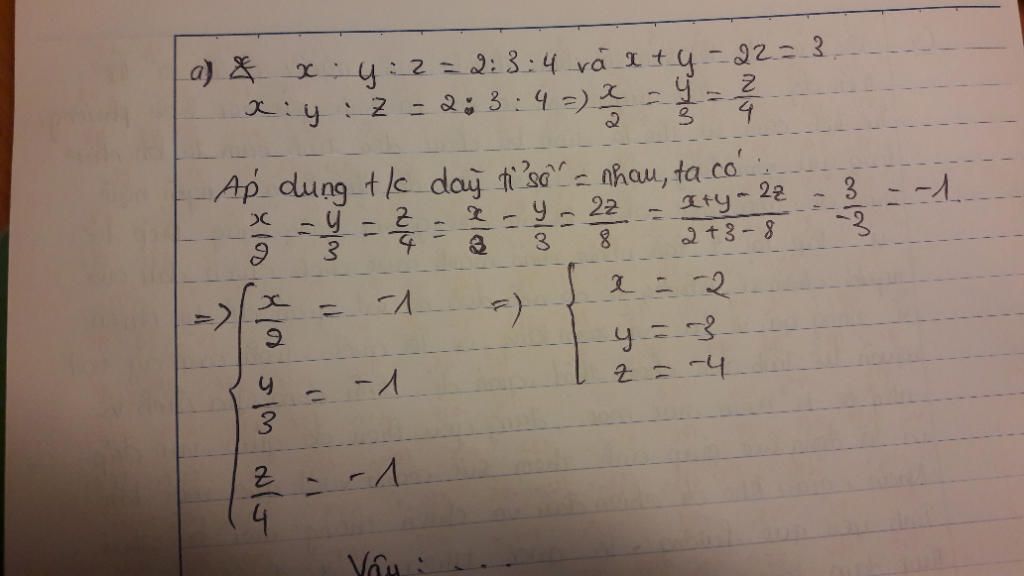 a) x : y : z = 2 : 3 : 4 và x + y - 2z = 3
x : y : z = 2 : 3 : 4 => x/2 = y/3 = z/4
Áp dung t/c dãy tỉ số = nhau, ta có :
x/2 = y/3 = z/4 = x/2 = y/3 = 2z/8 = x+y-2z/2+3-8 = 3/-3 = -1
=> { x/2 = -1 => { x = -2
y/3 = -1 y = -3
z/4 = -1 z = -4
Vậy : ...